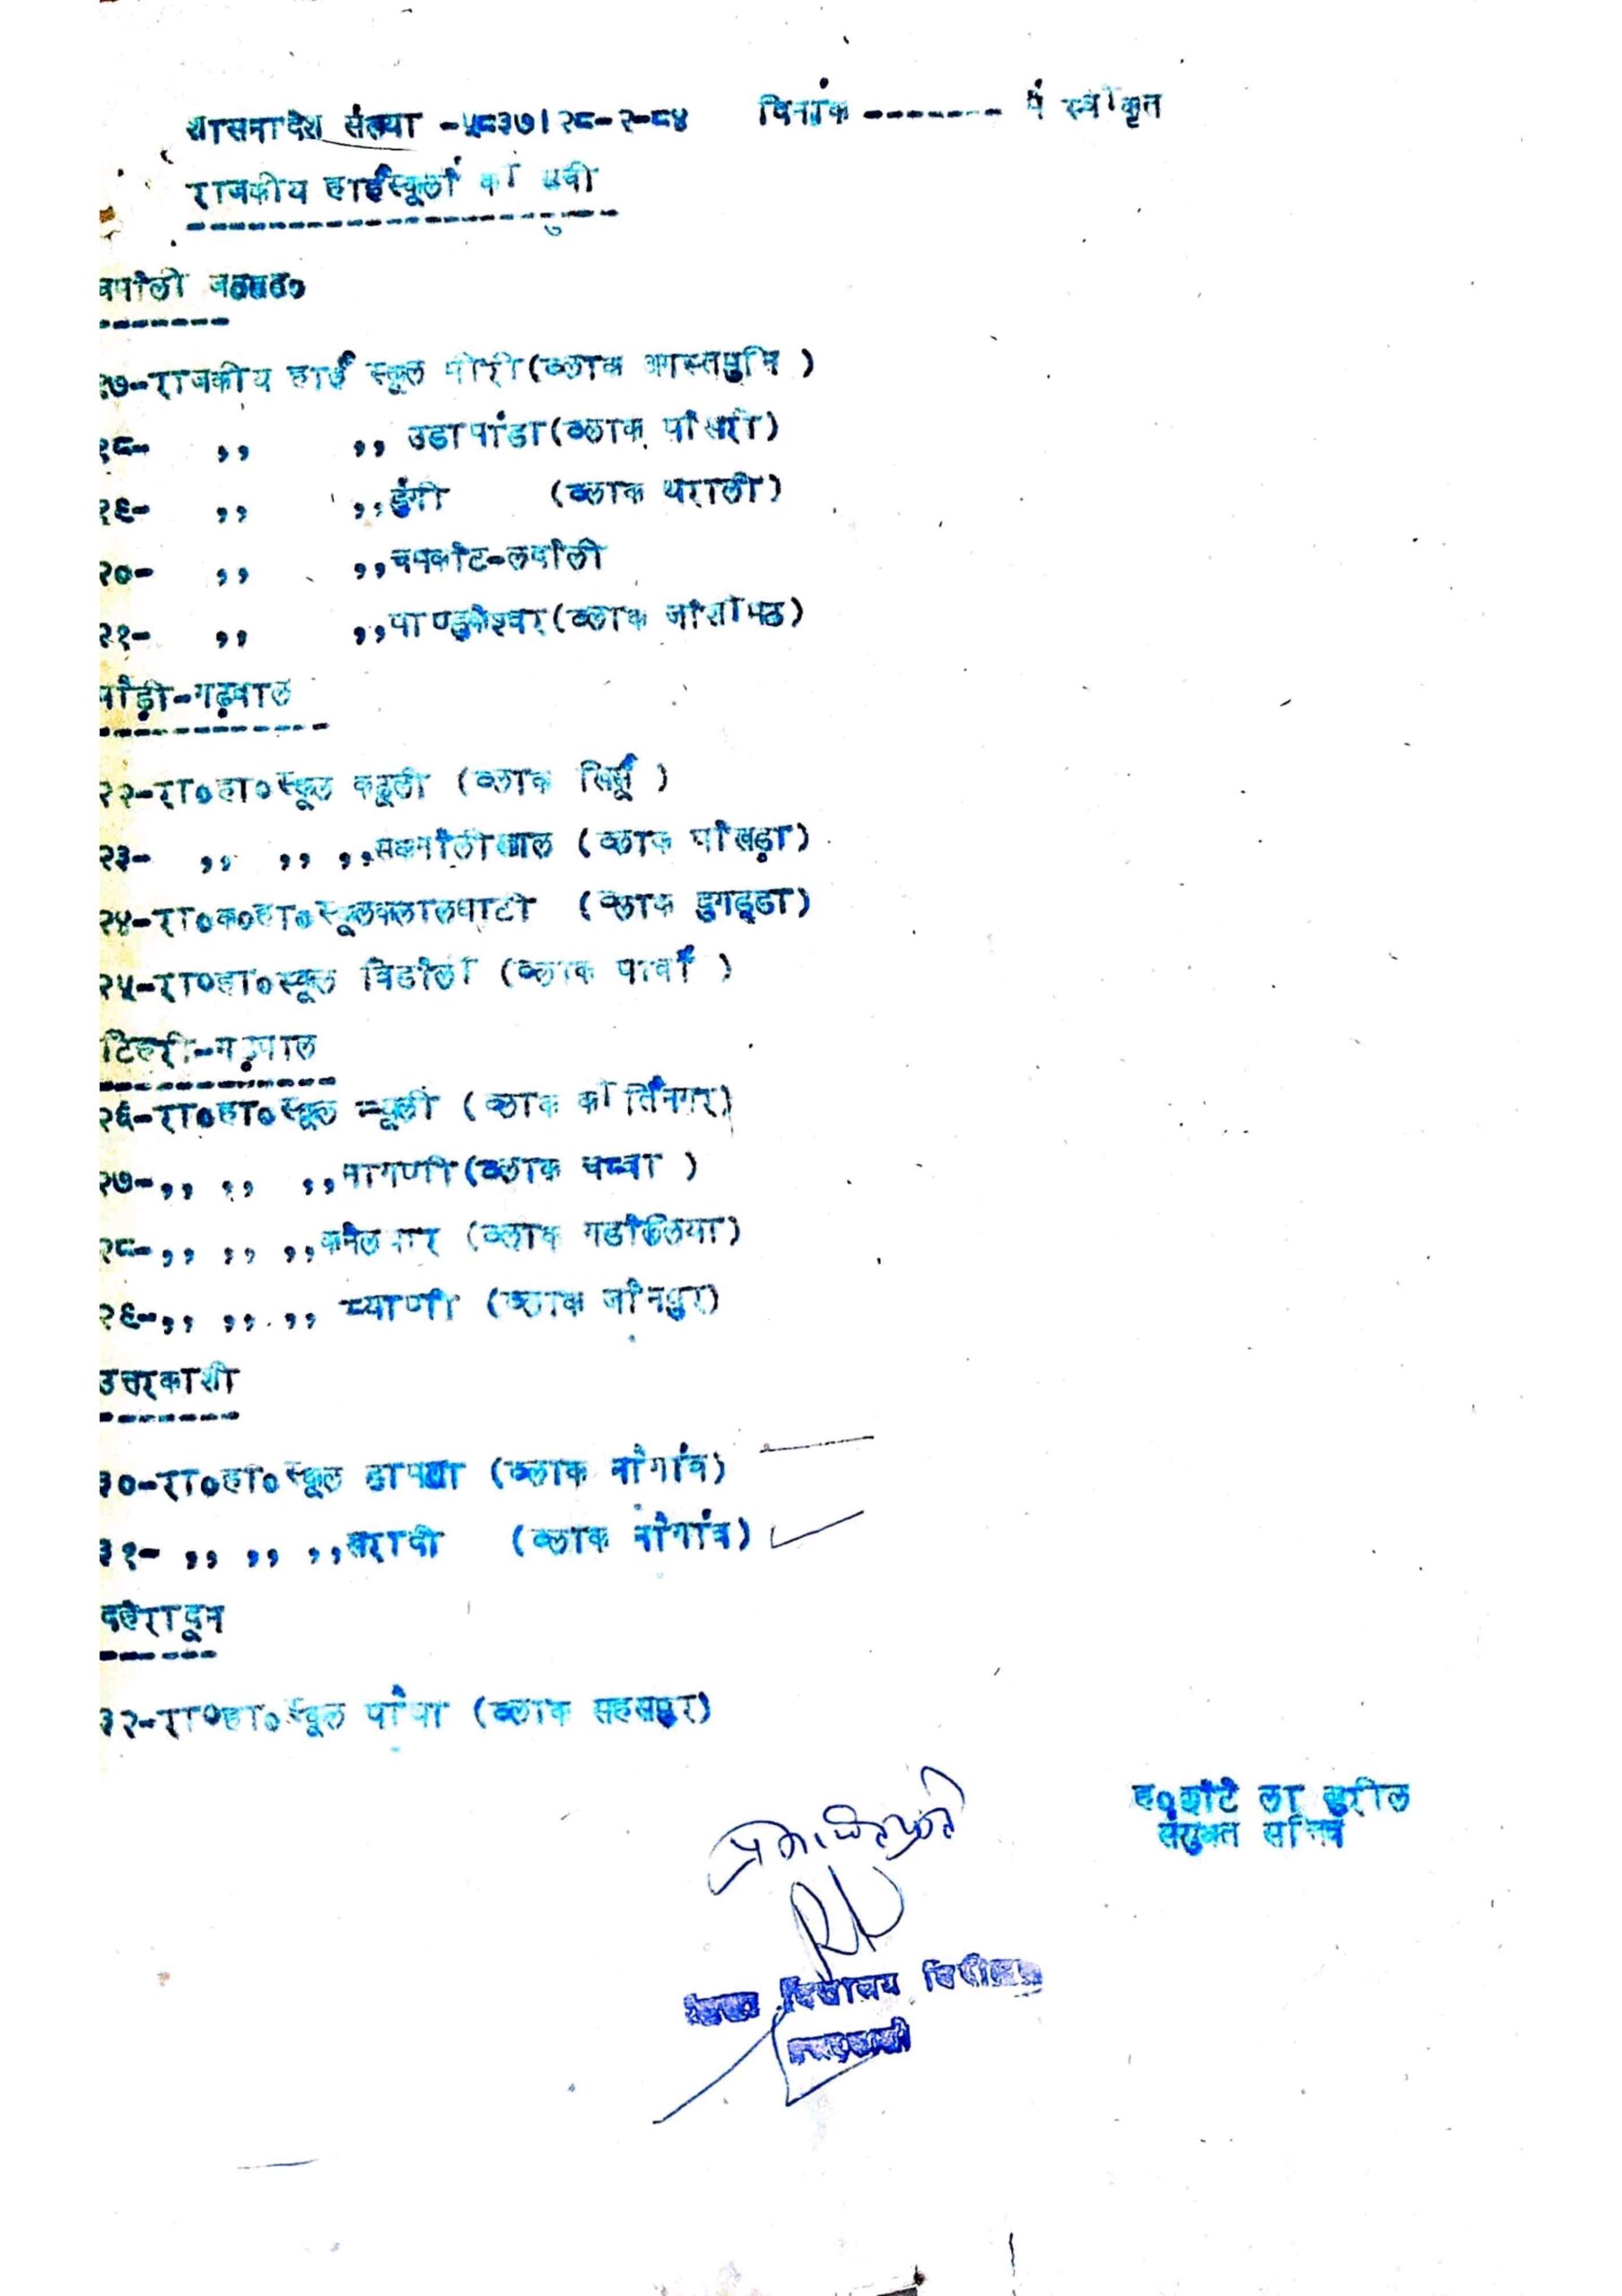 शासनादेश संख्या -५८३७।२८-२-८४ दिनांक ------- में स्वीकृत
राजकीय हाईस्कूलों की सूची
१७-राजकीय हाई स्कूल (ब्लाक अगस्तमुनि )
१८- ,, ,, उडापांडा(ब्लाक
१९- ,, ,,डुंगी (ब्लाक थराली)
२०- ,, ,,
२१- ,, ,,पाण्डुकेश्वर(ब्लाक जोशीमठ)
पौड़ी-गढ़वाल
२२-रा०हा०स्कूल कठूली (ब्लाक खिर्सू )
२३- ,, ,, ,, (ब्लाक पोखड़ा)
२४-रा०क०हा०स्कूलकलालघाटी (ब्लाक दुगड्डा)
२५-रा०हा०स्कूल (ब्लाक पाबौं )
टिहरी-गढ़वाल
२६-रा०हा०स्कूल न्यूली (ब्लाक कीर्तिनगर)
२७-,, ,, ,,नागणी(ब्लाक चम्बा )
२८-,, ,, ,, (ब्लाक
२९-,, ,, ,, म्याणी (ब्लाक जौनपुर)
उत्तरकाशी
३०-रा०हा०स्कूल (ब्लाक नौगांव)
३१- ,, ,, ,,खरादी (ब्लाक नौगांव)
देहरादून
३२-रा०हा०स्कूल पौंधा (ब्लाक सहसपुर)
संयुक्त सचिव
विद्यालय